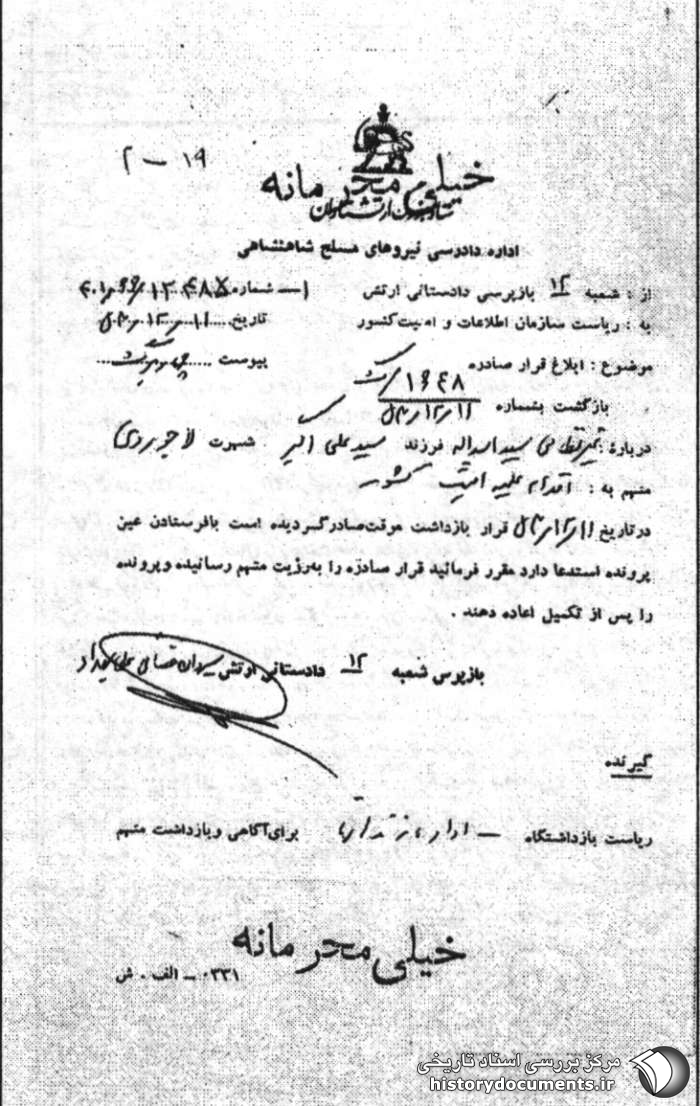 ۱۹ – ۲
خیلی محرمانه
ستاد بزرگ ارتشتاران
اداره دادرسی نیروهای مسلح شاهنشاهی
از : شعبه ۱۲ بازپرسی دادستانی ارتش
شماره
به : ریاست سازمان اطلاعات و امنیت کشور
تاریخ ۱۱ر۱۲ر
موضوع : ابلاغ قرار صادره
پیوست
بازگشت بشماره ۱۶۴۸ ۱۱ر۱۲ر
درباره : غیرنظامی سید اسداله فرزند سید علی اکبر شهرت لاجوردی
متهم به : اقدام علیه امنیت کشور
درتاریخ ۱۱ر۱۲ر قرار بازداشت موقت صادر گردیده است بافرستادن عین
پرونده استدعا دارد مقرر فرمائید قرار صادره را به رؤیت متهم رسانیده و پرونده
را پس از تکمیل اعاده دهند .
بازپرس شعبه ۱۲ دادستانی ارتش
گیرنده
ریاست بازداشتگاه – برای آگاهی و بازداشت متهم
خیلی محرمانه
۰۳۳۱ – الف . ش
مرکز بررسی اسناد تاریخی
historydocuments.ir